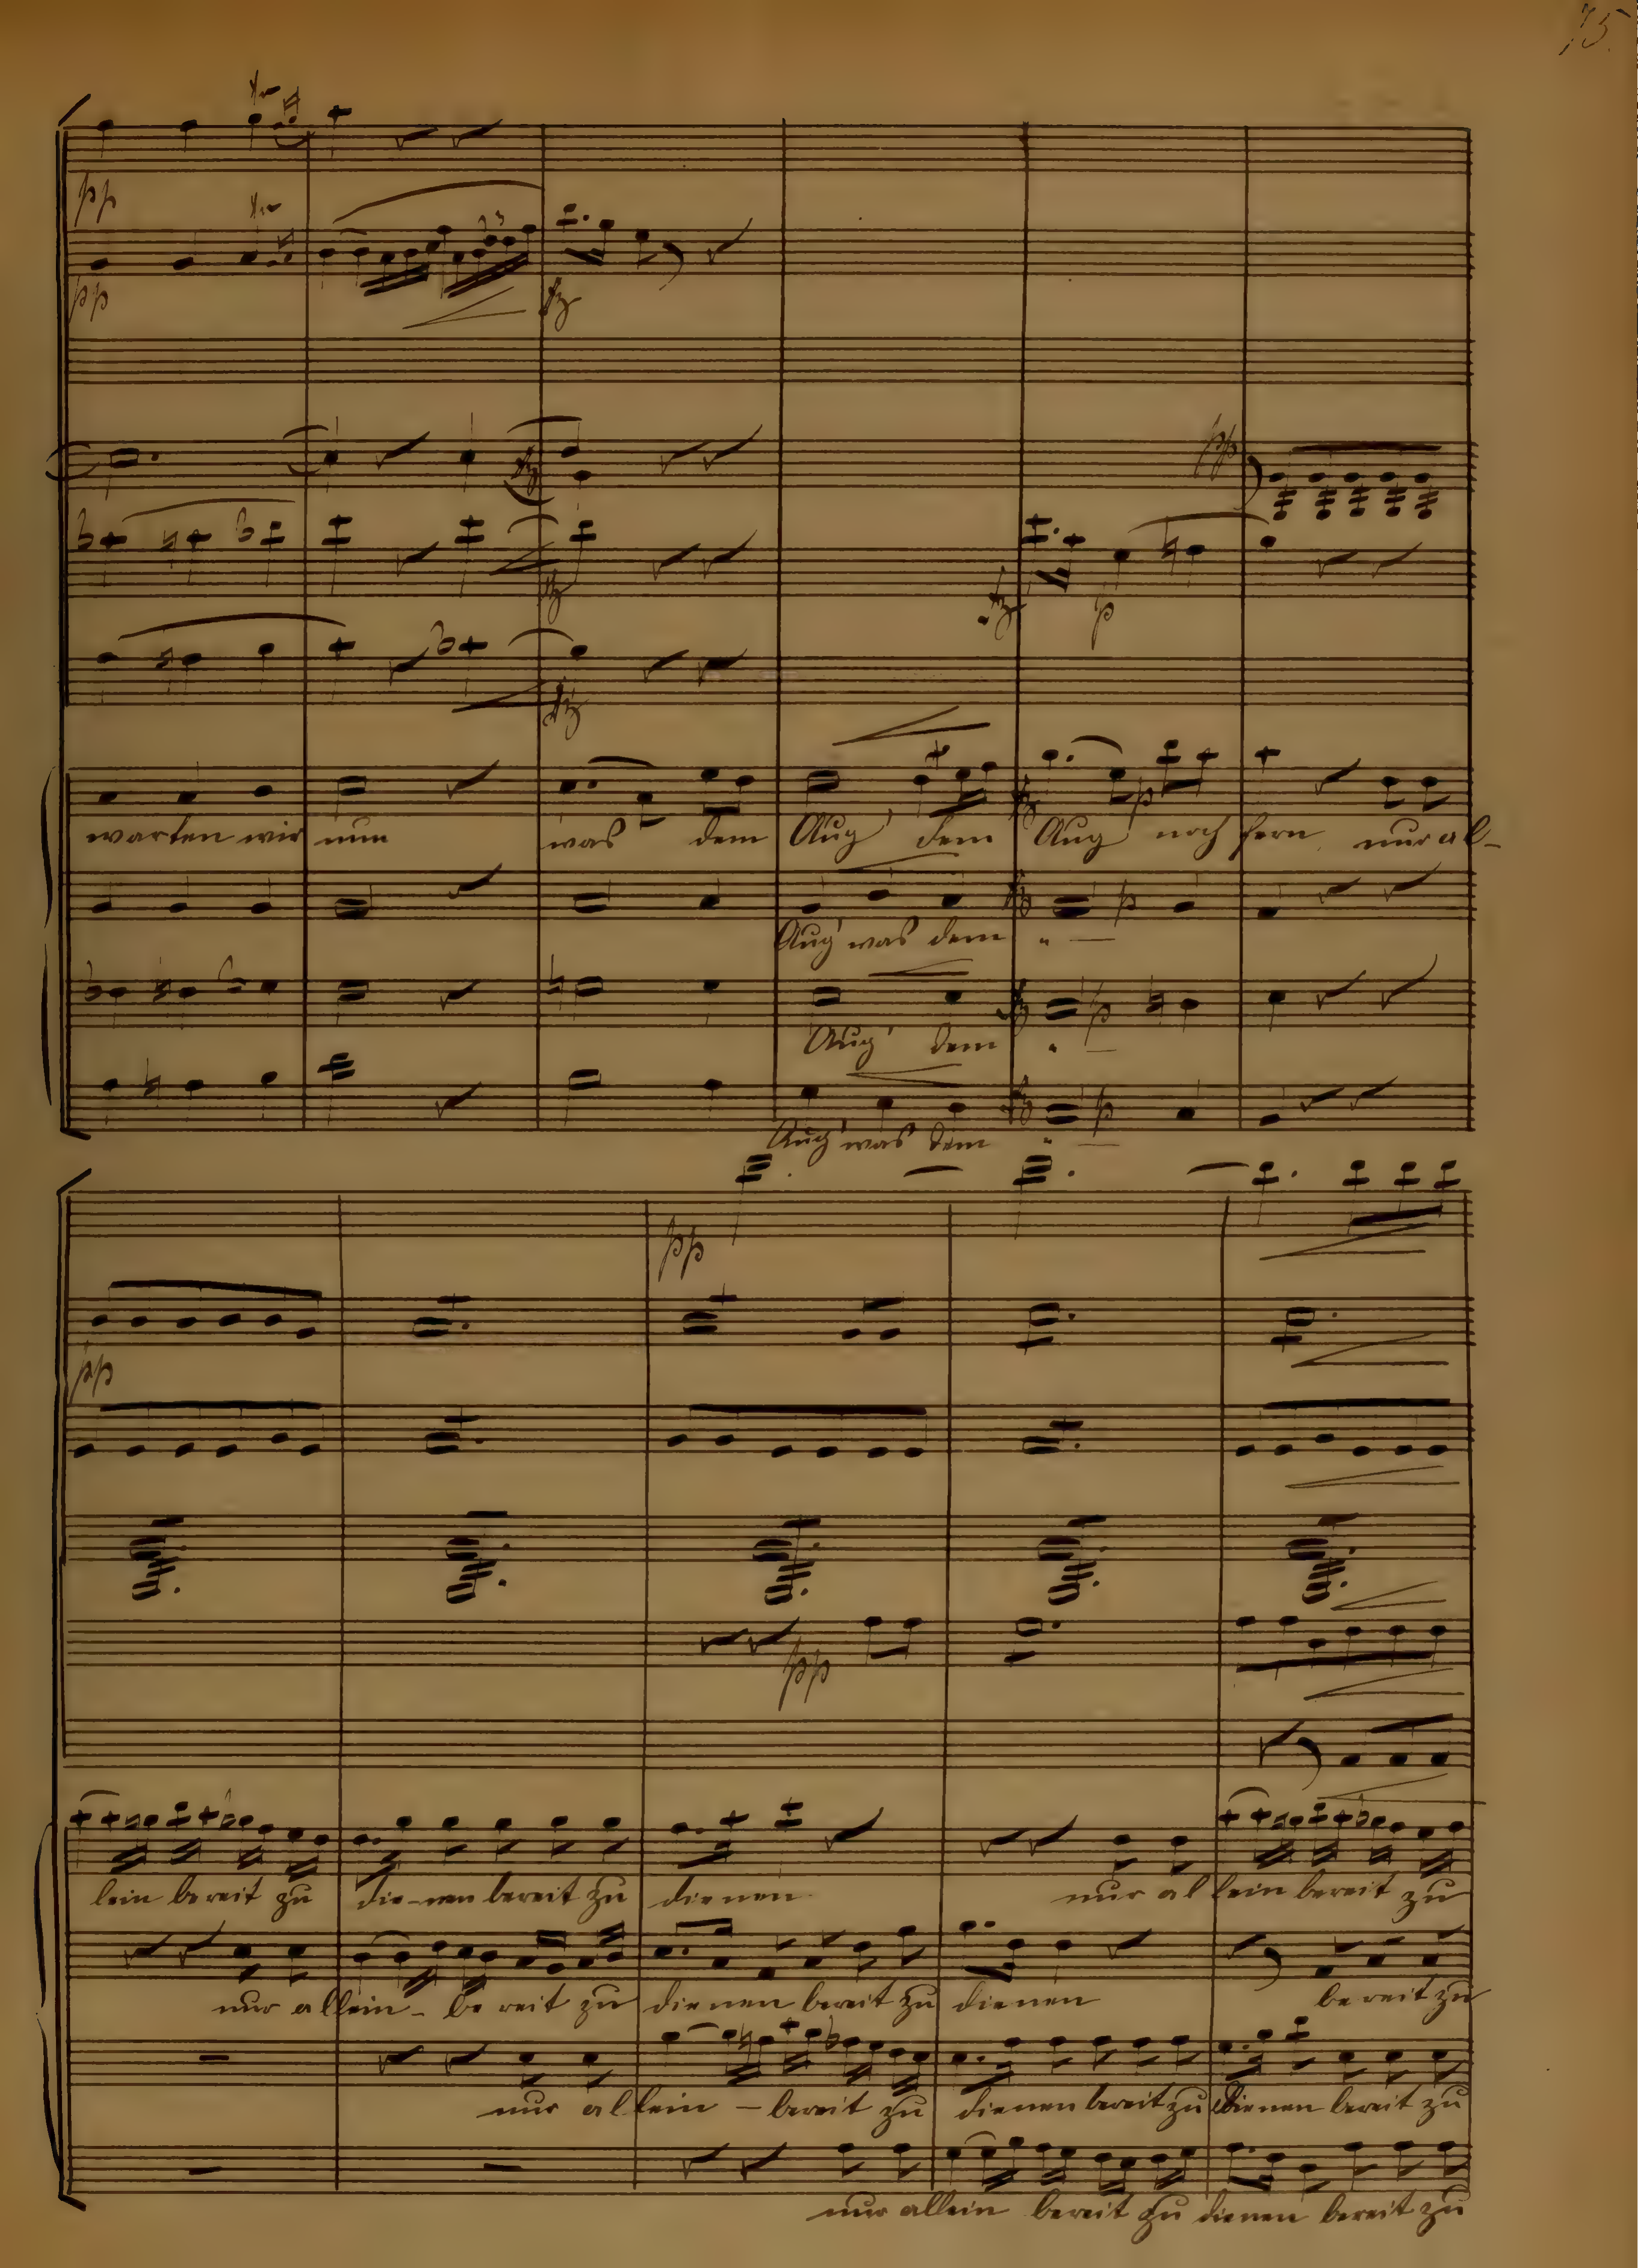 75.
pp
pp
fz
pp
fz
fz p
fz
warten wir nun was dem Aug' dem Aug noch fern nur al-
Aug' was dem " —
Aug' dem " —
Aug' was dem " —
pp
pp
pp
lein bereit zu die-nen bereit zu dienen nur al lein bereit zu
nur allein - be reit zu dienen bereit zu dienen be reit zu
nur allein - bereit zu dienen bereit zu dienen bereit zu
nur allein bereit zu dienen bereit zu